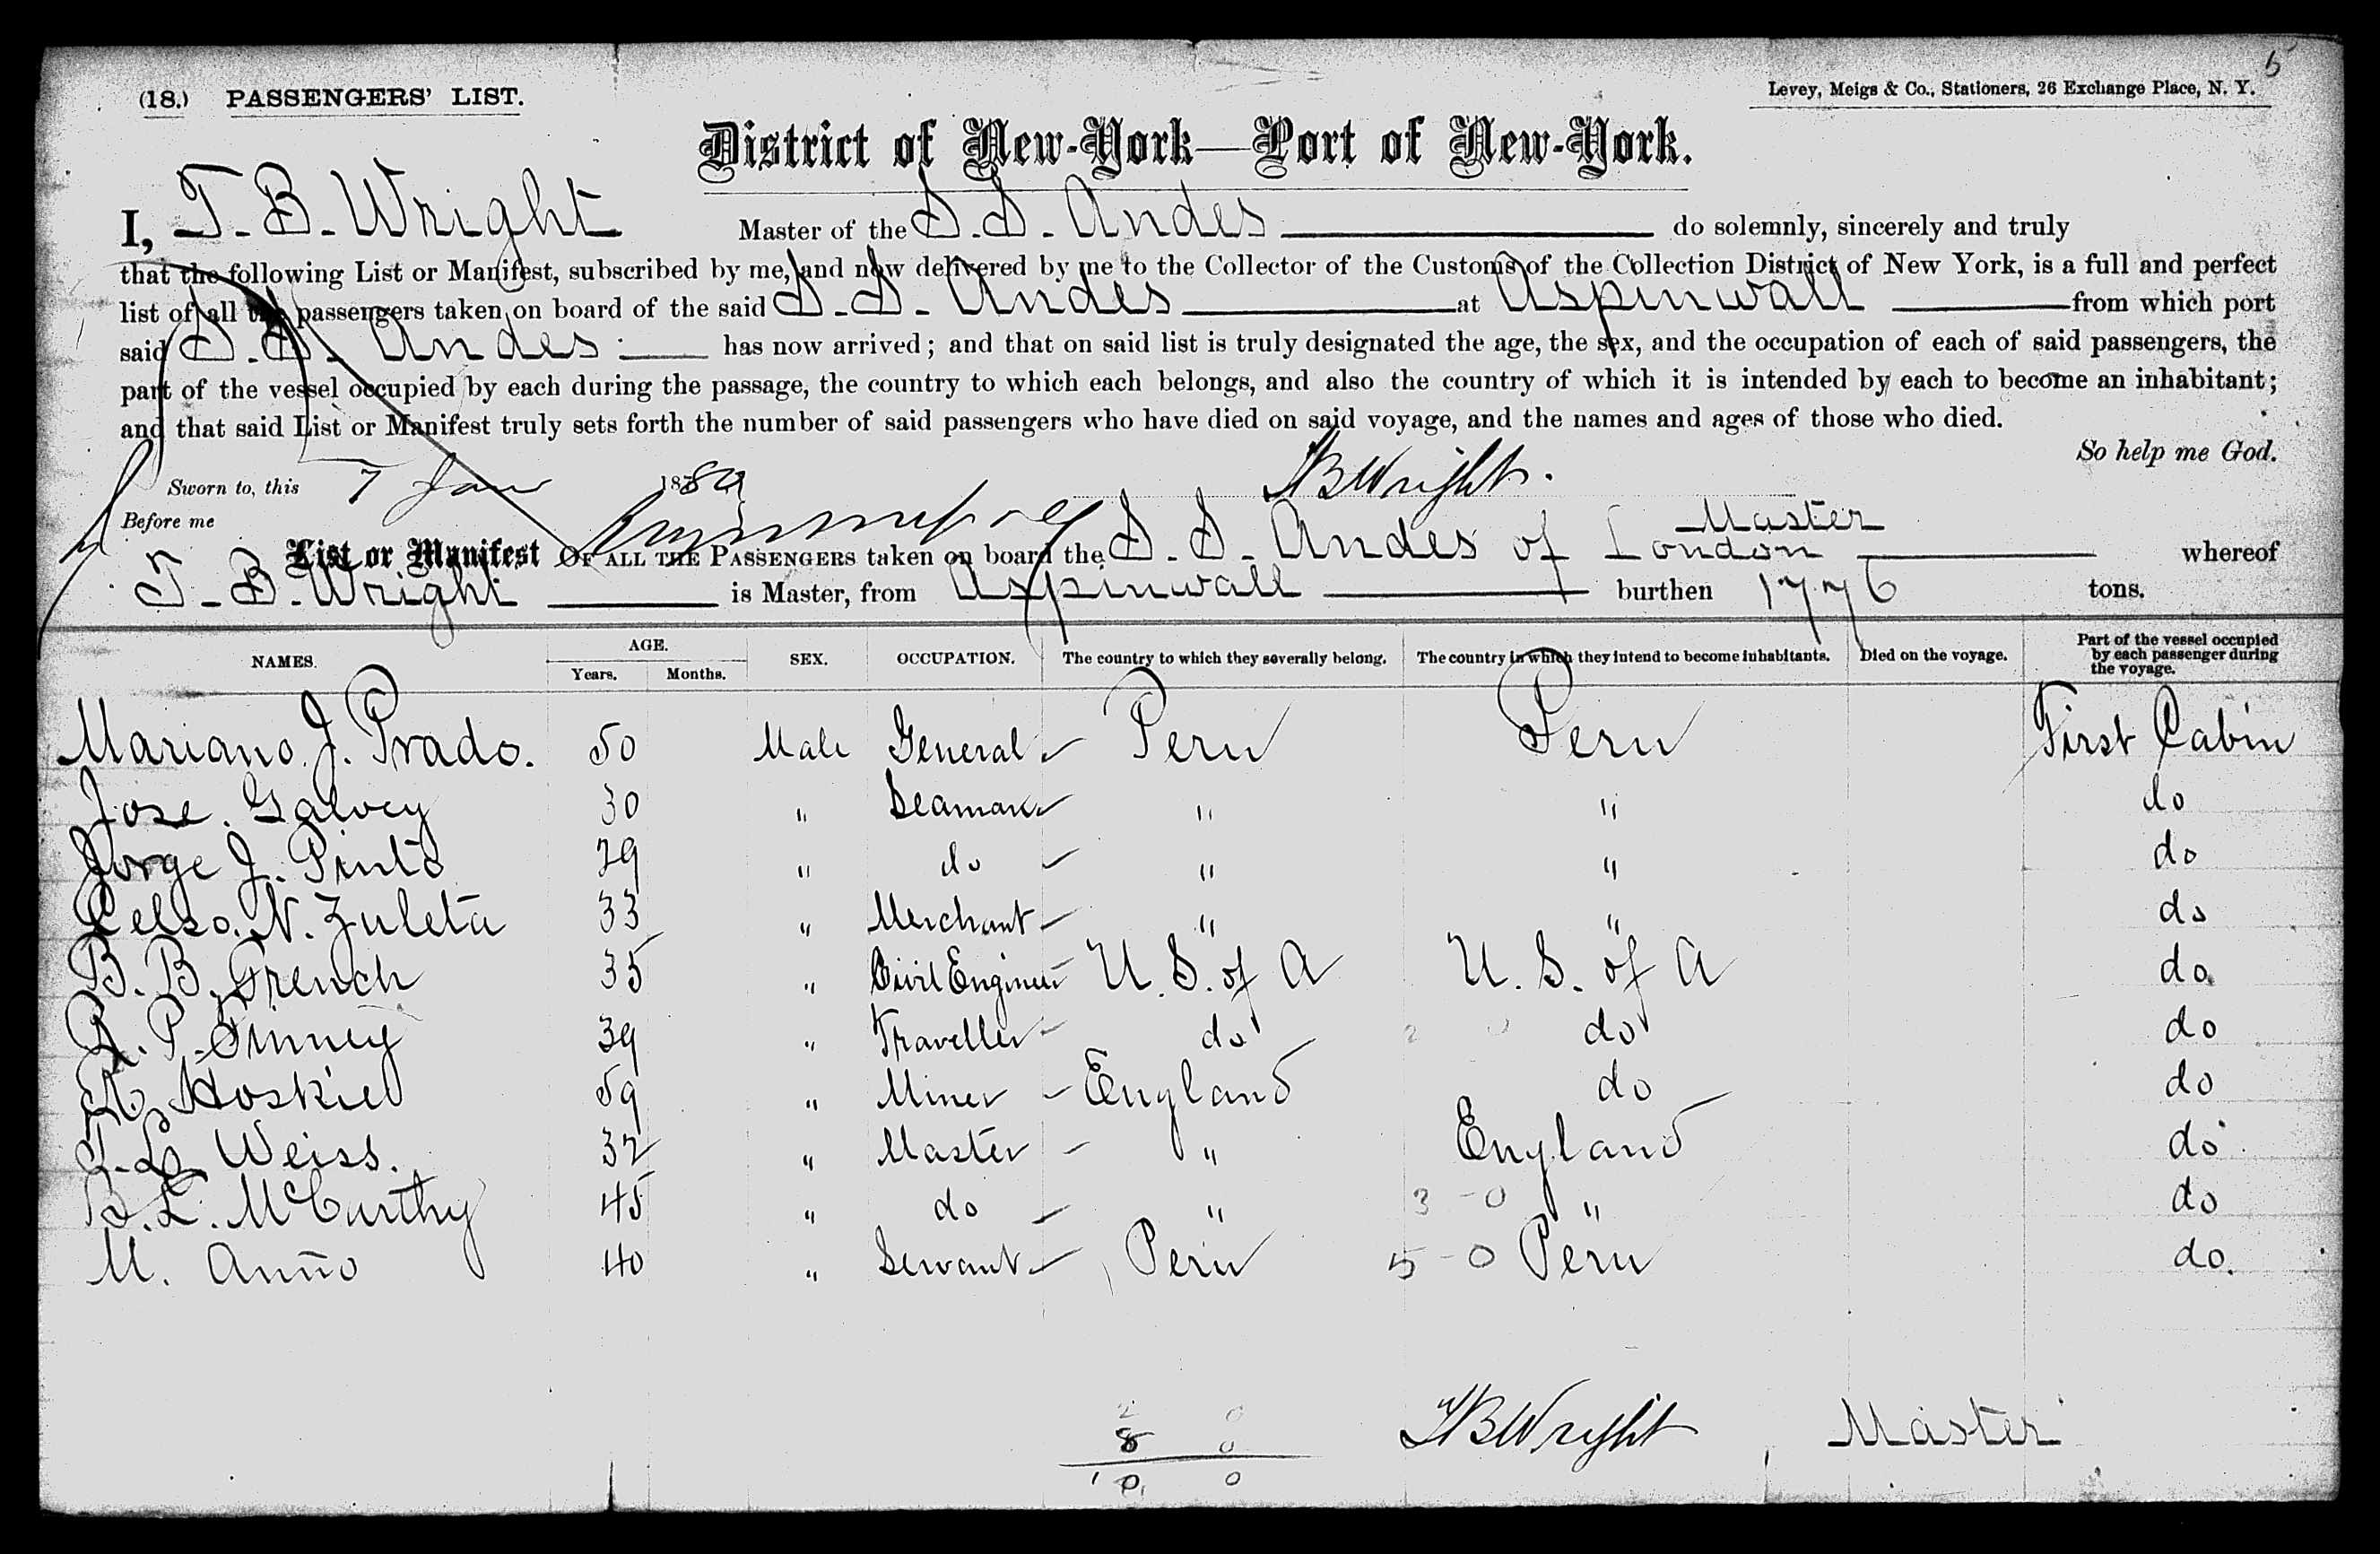 5
(18.) PASSENGERS' LIST. Levey, Meigs & Co., Stationers, 26 Exchange Place, N. Y.
District of New-York—Port of New-York.
I, T. B. Wright Master of the S.S. Andes do solemnly, sincerely and truly
that the following List or Manifest, subscribed by me, and now delivered by me to the Collector of the Customs of the Collection District of New York, is a full and perfect
list of all the passengers taken on board of the said S.S. Andes at Aspinwall from which port
said S.S. Andes has now arrived; and that on said list is truly designated the age, the sex, and the occupation of each of said passengers, the
part of the vessel occupied by each during the passage, the country to which each belongs, and also the country of which it is intended by each to become an inhabitant;
and that said List or Manifest truly sets forth the number of said passengers who have died on said voyage, and the names and ages of those who died.
So help me God.
Sworn to, this 7 Jan 1880 TB Wright.
Before me Master
List or Manifest OF ALL THE PASSENGERS taken on board the S.S. Andes of London whereof
T. B. Wright is Master, from Aspinwall burthen 1776 tons.
NAMES. AGE. Years. Months. SEX. OCCUPATION. The country to which they severally belong. The country in which they intend to become inhabitants. Died on the voyage. Part of the vessel occupied by each passenger during the voyage.
Mariano J. Prado. 50 Male General Peru Peru First Cabin
Jose. Galvey 30 " Seaman " " do
Jorge J. Pinto 29 " do " " do
Celso. N. Zuleta 33 " Merchant " " do
B. B. French 35 " Civil Engineer U. S. of A U. S. of A do
R. P. 39 " Traveller do 2 0 do do
59 " Miner England do do
Weiss. 32 " Master " England do
B. L. McCarthy 45 " do " 3 - 0 " do
M. 40 " Servant Peru 5 - 0 Peru do.
2 0
8 0 TB Wright Master
10 0